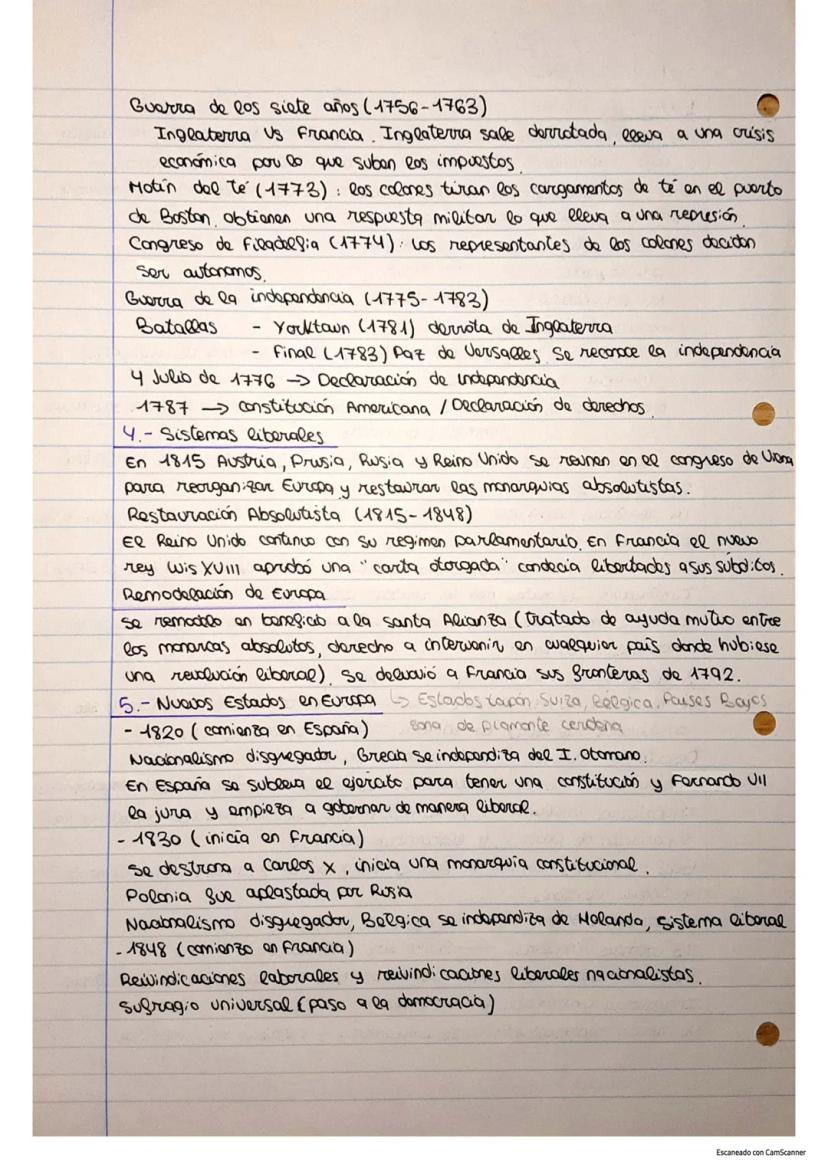 Guerra de los siete años (1756-1763)
Inglaterra Vs Francia. Inglaterra sale derrotada, lleva a una crisis
económica por lo que suben los impuestos.
Motín del té (1773): los colones tiran los cargamentos de té en el puerto
de Boston, obtienen una respuesta militar lo que lleva a una represión.
Congreso de Filadelfia (1774): Los representantes de los colones deciden
ser autonomos.
Guerra de la independencia (1775-1783)
Batallas - Yorktown (1781) derrota de Inglaterra
- Final (1783) Paz de Versalles. Se reconoce la independencia
4 Julio de 1776 → Declaración de independencia
1787 → Constitución Americana / Declaración de derechos.
4.- Sistemas liberales
En 1815 Austria, Prusia, Rusia y Reino Unido se reunen en el congreso de Viena
para reorganizar Europa y restaurar las monarquias absolutistas.
Restauración Absolutista (1815-1848)
El Reino Unido continuo con su regimen parlamentario. En Francia el nuevo
rey Luis XVIII aprobó una "carta otorgada" condecia libertades a sus súbditos.
Remodelación de Europa
Se remodelo en beneficio a la santa Alianza (tratado de ayuda mutuo entre
los monarcas absolutos, derecho a intervenir en cualquier país donde hubiese
una revolución liberal). Se delvovió a Francia sus fronteras de 1792.
5.- Nuevos Estados en Europa ↳ Estados tapón, Suiza, Bélgica, Países Bajos
- 1820 (comienza en España) zona de piamonte cerdeña
Nacionalismo disgregador, Grecia se independiza del I. Otomano.
En España se subleva el ejercito para tener una constitución y Fernando VII
la jura y empieza a gobernar de manera liberal.
- 1830 (inicia en Francia)
Se destrona a Carlos X, inicia una monarquía constitucional.
Polonia fue aplastada por Rusia
Nacionalismo disgregador, Belgica se independiza de Holanda, sistema liberal
- 1848 (comienzo en Francia)
Reivindicaciones laborales y reivindicaciones liberales nacionalistas.
Sufragio universal (paso a la democracia)
Escaneado con CamScanner